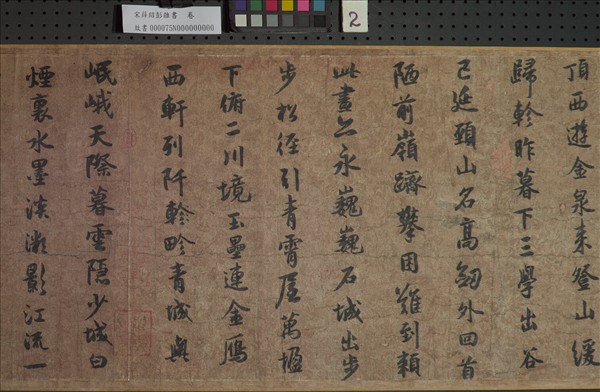 宋薛紹彭雜書 卷
故書000075N000000000
2
頂西遊金泉来登山緩
歸軫昨暮下三學出谷
已延頸山名高劒外回首
陋前嶺躋攀困難到頼
此晝永巍巍石城出步
步松徑引青霄屋萬楹
下俯二川境玉壘連金鴈
西軒列阡軫畛青城與
岷峨天際暮雲隱少城白
煙裏水墨淡影江流一